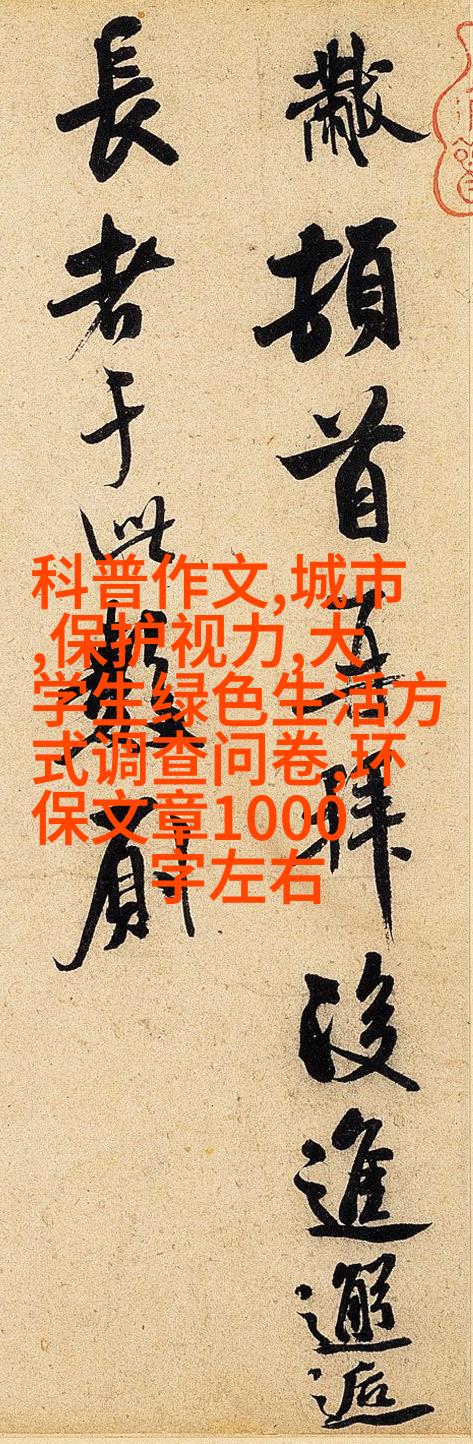 黻頓首再拜後進邂逅
長者于此數厨
科普作文,城市
,保护视力,大
学生绿色生活方
式调查问卷,环
保文章1000
字左右